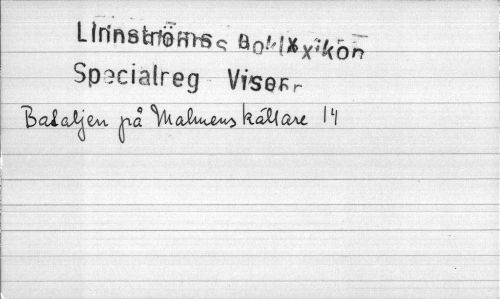 Linnströms Boklexikon
Specialreg Visor
Bataljen på Malmens källare 14